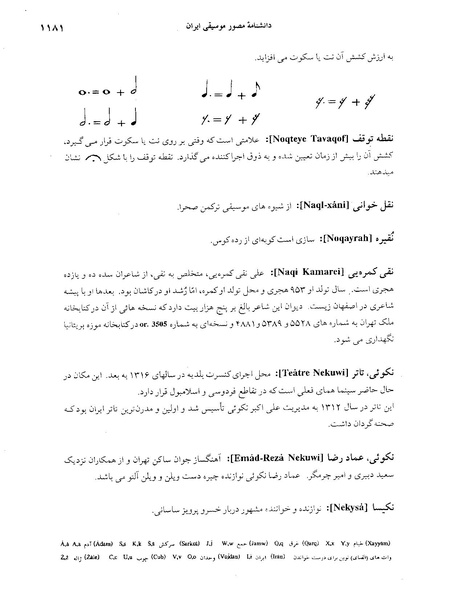 دانشنامهٔ مصور موسیقی ایران
۱۱۸۱
به ارزش کشش آن نت یا سکوت می افزاید.
نقطه توقف [Noqteye Tavaqof]: علامتی است که وقتی بر روی نت یا سکوت قرار می گیرد،
کشش آن را بیش از زمان تعیین شده و به ذوق اجراکننده می گذارد. نقطه توقف را با شکل نشان
میدهند.
نقل خوانی [Naql-xâni]: از شیوه های موسیقی ترکمن صحرا.
نُقیره [Noqayrah]: سازی است کوبه‌ای از رده کوس.
نقی کمره‌یی [Naqi Kamarei]: علی نقی کمره‌یی، متخلص به نقی، از شاعران سده ده و یازده
هجری است. سال تولد او ۹۵۳ هجری و محل تولد او کمره، امّا رُشد او در کاشان بود. بعدها او با پیشه
شاعری در اصفهان زیست. دیوان این شاعر بالغ بر پنج هزار بیت دارد که نسخه هائی از آن در کتابخانه
ملک تهران به شماره های ۵۵۲۸ و ۵۳۸۹ و ۲۸۸۱ و نسخه‌ای به شماره or. 3505 در کتابخانه موزه بریتانیا
نگهداری می شود.
نکوئی، تاتر [Teâtre Nekuwi]: محل اجرای کنسرت بلدیه در سالهای ۱۳۱۶ به بعد. این مکان در
حال حاضر سینما همای فعلی است که در تقاطع فردوسی و اسلامبول قرار دارد.
این تاتر در سال ۱۳۱۲ به مدیریت علی اکبر نکوئی تأسیس شد و اولین و مدرن‌ترین تاتر ایران بود که
صحنه گردان داشت.
نکوئی، عماد رضا [Emâd-Rezâ Nekuwi]: آهنگساز جوان ساکن تهران و از همکاران نزدیک
سعید دبیری و امیر چرمگر. عماد رضا نکوئی نوازنده چیره دست ویلن و ویلن آلتو می باشد.
نکیسا [Nekysâ]: نوازنده و خواننده مشهور دربار خسرو پرویز ساسانی.
Â,â A,a آدم (Âdam) Š,š K,k Š,š سرکش (Sarkeš) J,j W,w جمع (Jamw) Q,q غرق (Qarq) X,x Y,y خیام (Xayyâm)
Ž,ž ژاله (Žâle) C,c U,u چوب (Cub) V,v O,o وجدان (Vojdân) I,i ایران (Irân) وات های (الفبای) نوین برای درست خواندن